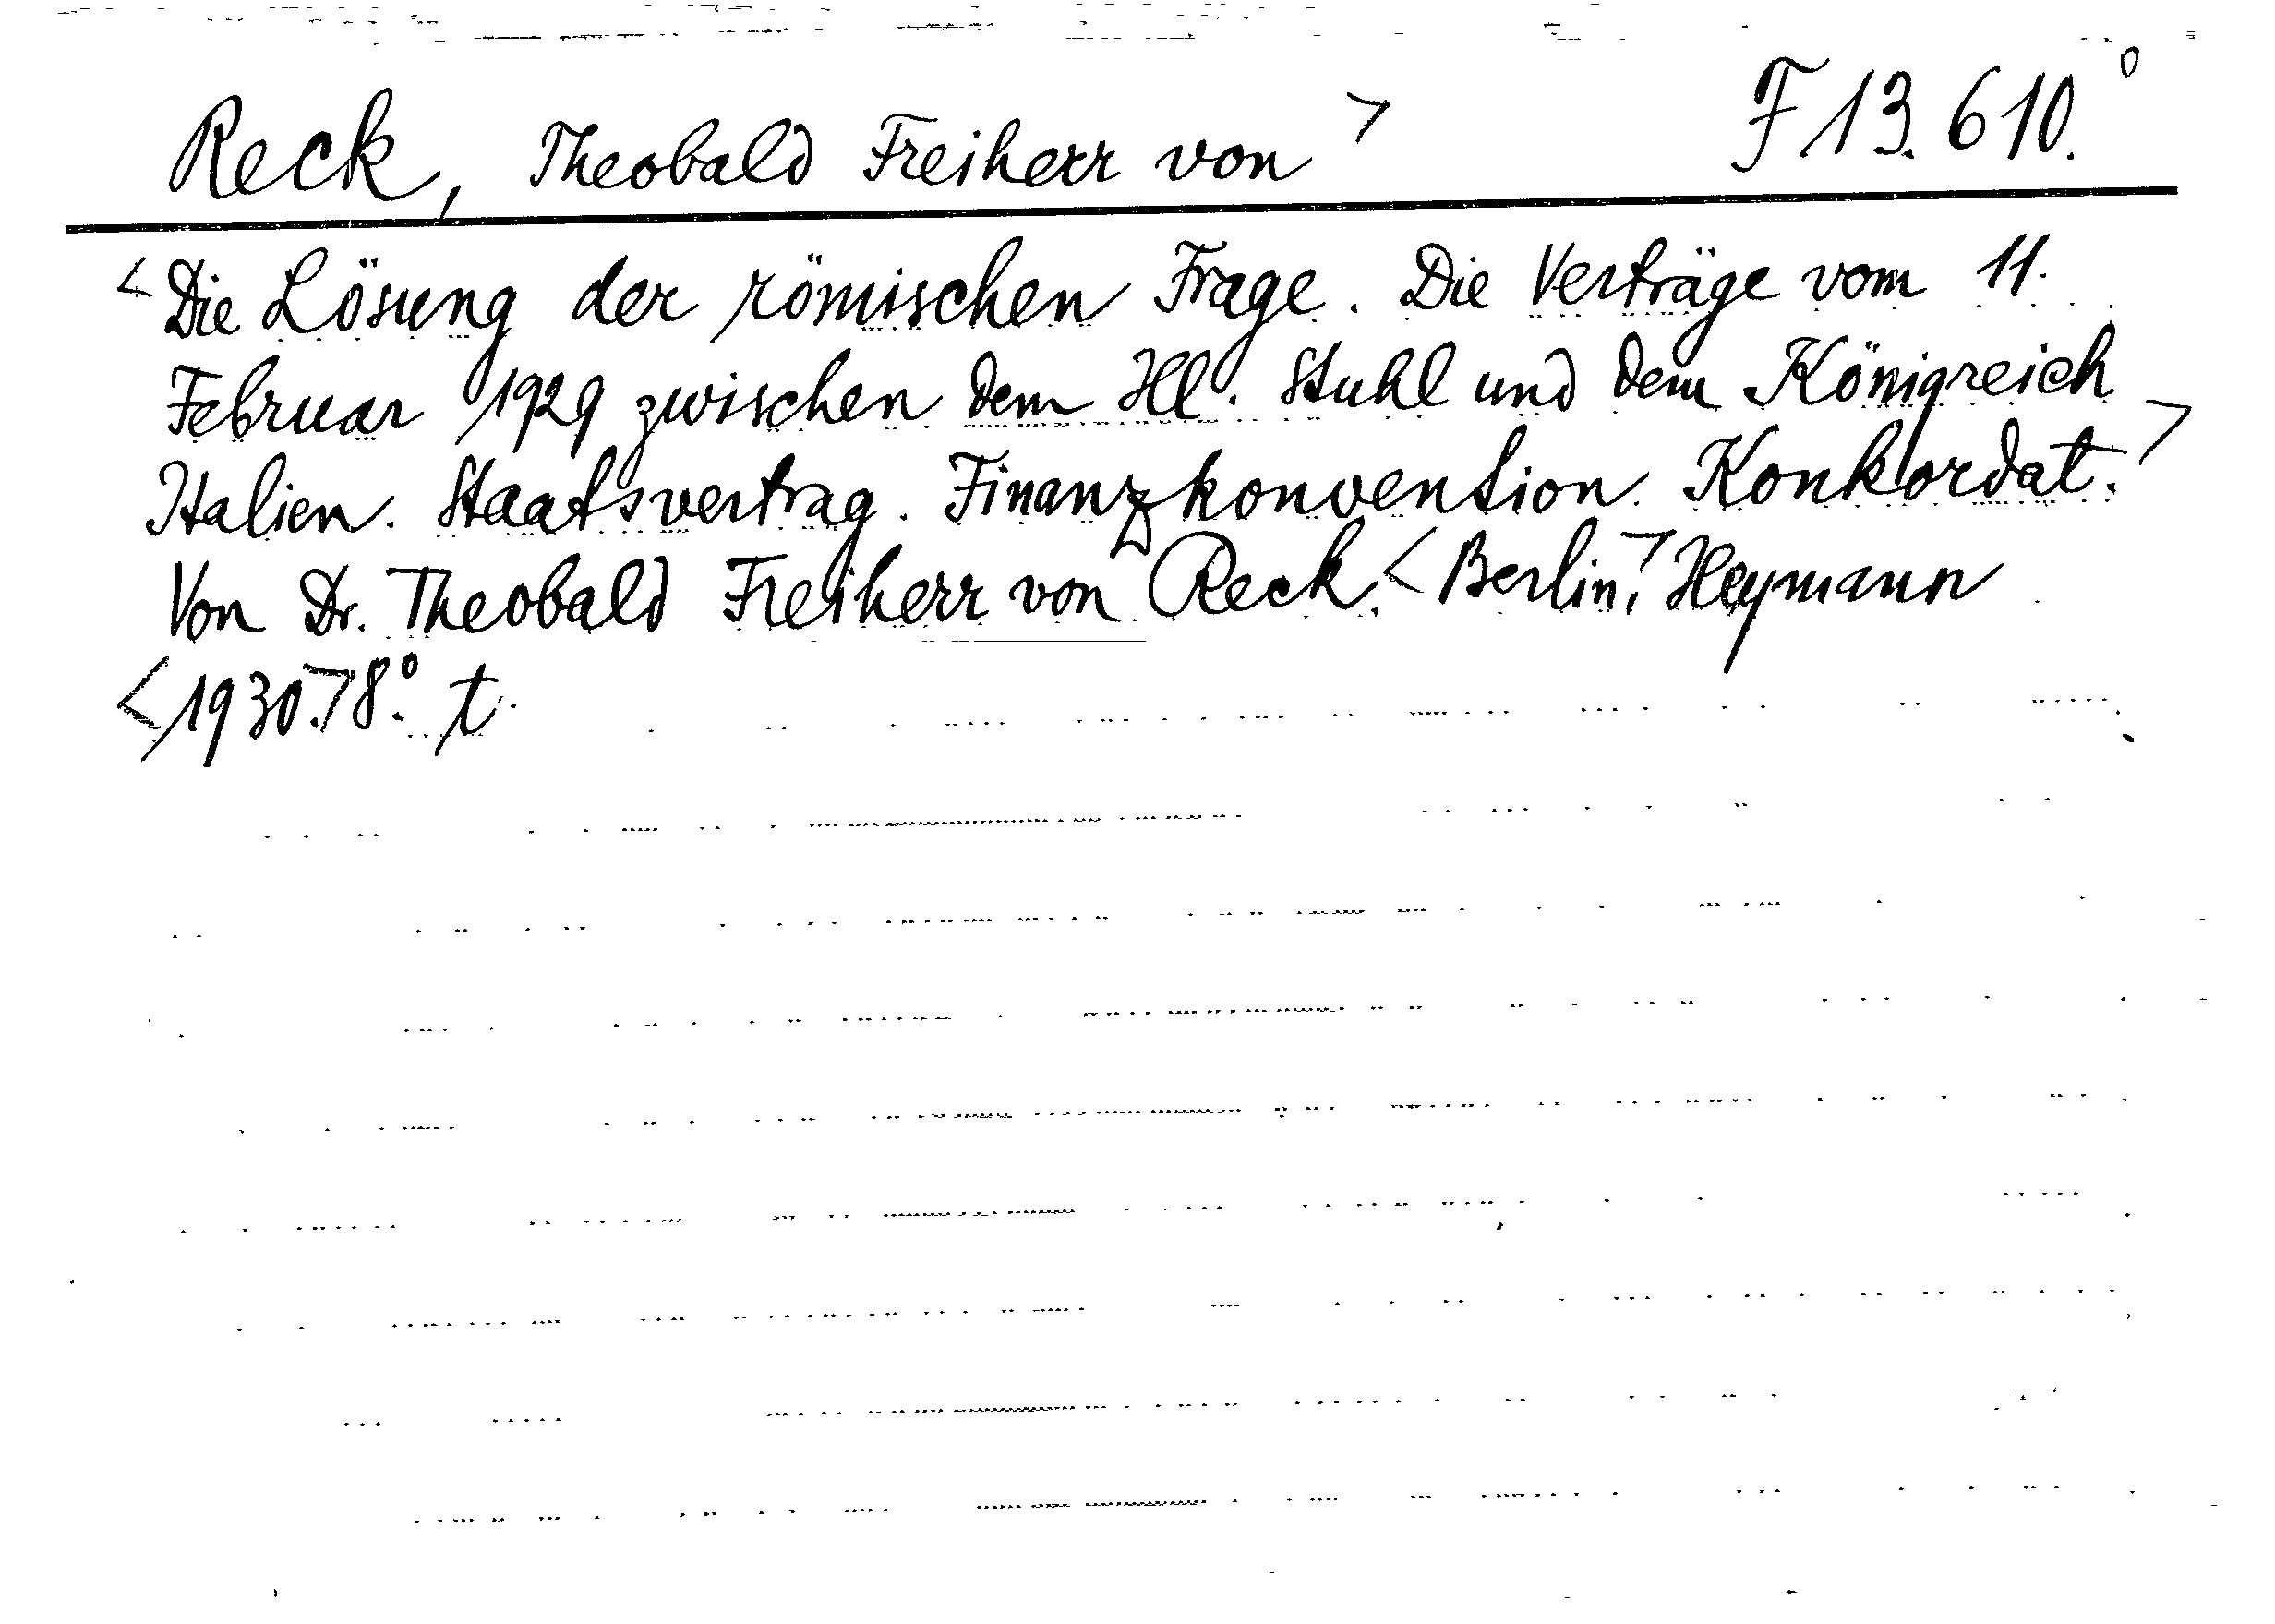 Reck, Theobald Freiherr von > F 13.610.°
< Die Lösung der römischen Frage. Die Verträge vom 11.
Februar 1929 zwischen dem Hl. Stuhl und dem Königreich
Italien. Staatsvertrag. Finanzkonvention. Konkordat. >
Von Dr. Theobald Freiherr von Reck. < Berlin, > Heymann
< 1930. > 8°. t.